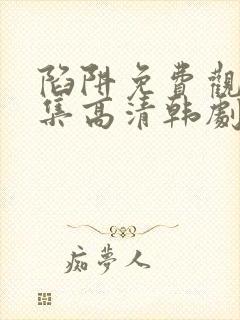 陷阱免費觀
集高清韩劇
痴夢人